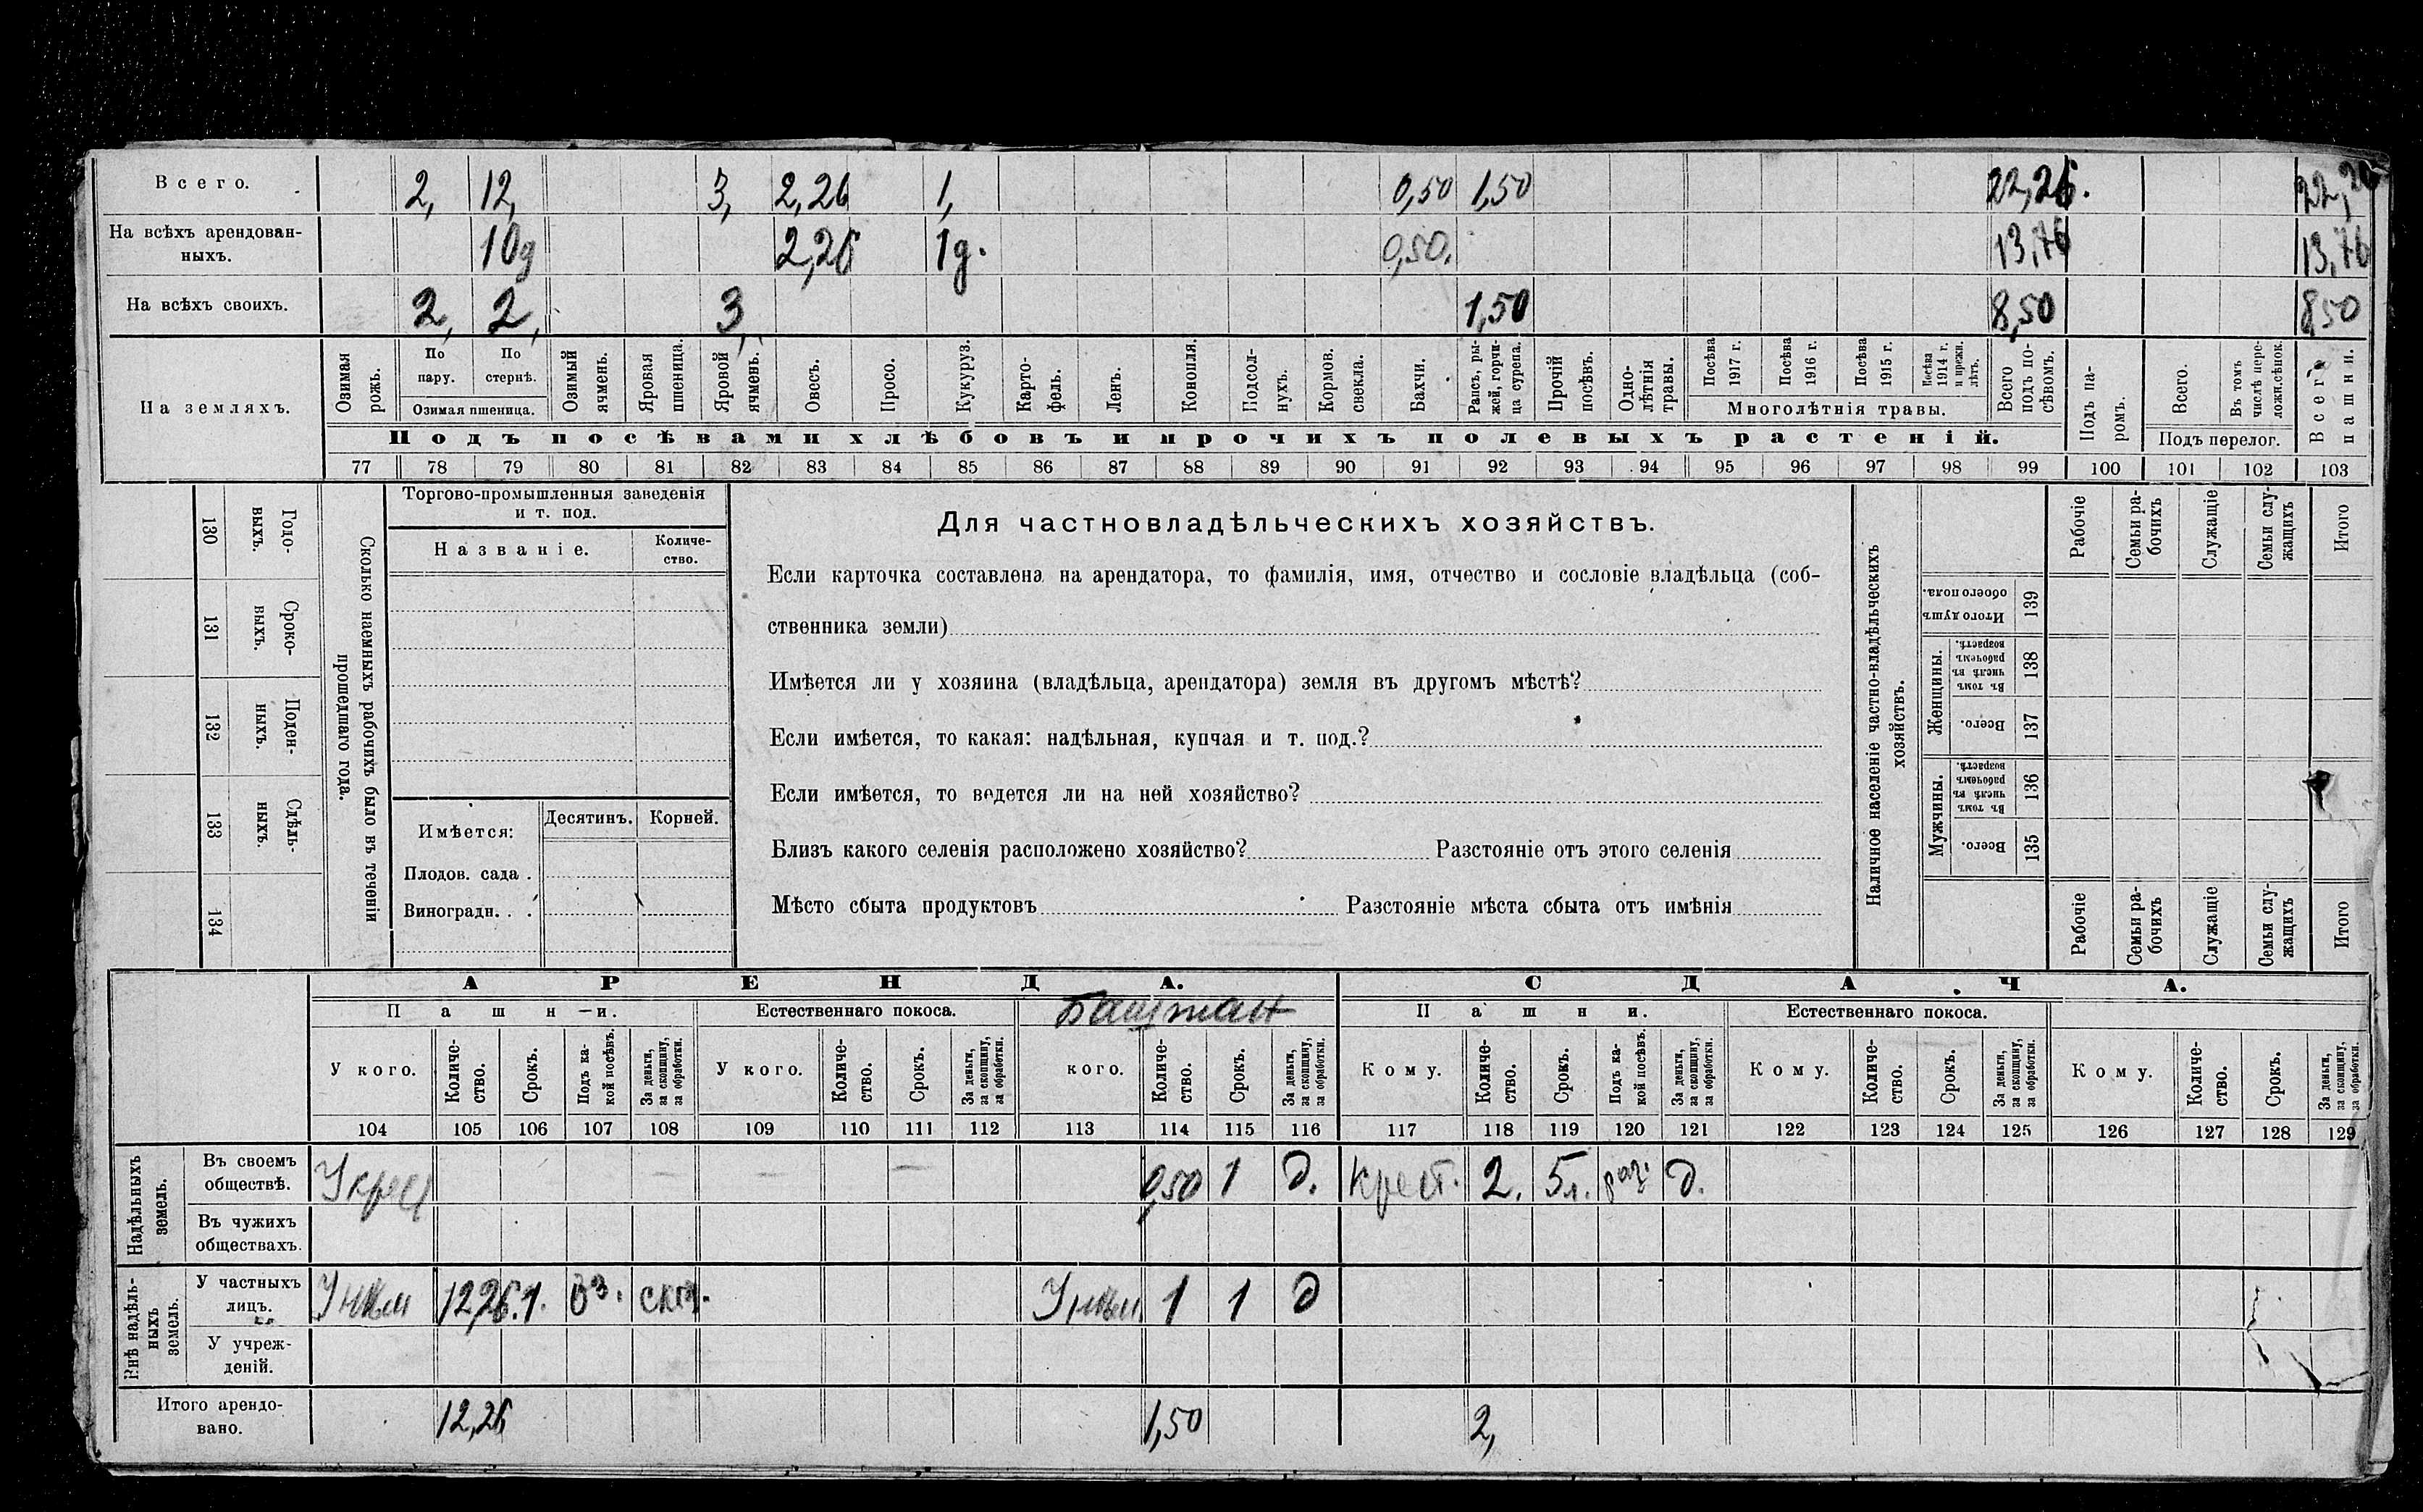 Всего. 2, 12, 3, 2,26 1, 0,50 1,50 22,26. 22,26
На всѣхъ арендован-
ныхъ. 10д 2,26 1д. 0,50. 13,76 13,76
На всѣхъ своихъ. 2, 2, 3, 1,50 8,50 8,50
На земляхъ.
Озимая рожь.
По пару.
По стернѣ.
Озимая пшеница.
Озимый ячмень.
Яровая пшеница.
Яровой ячмень.
Овесъ.
Просо.
Кукуруз.
Карто-
фель.
Ленъ.
Конопля.
Подсол-
нухъ.
Кормов.
свекла.
Бахчи.
Рапсъ, ры-
жей, горчи-
ца сурепа.
Прочій
посѣвъ.
Одно-
лѣтнія
травы.
Посѣва
1917 г.
Посѣва
1916 г.
Посѣва
1915 г.
Посѣва
1914 г.
и прежн.
лѣтъ.
Многолѣтнія травы.
Всего
подъ по-
сѣвомъ.
Подъ па-
ромъ.
Всего.
Въ томъ
числѣ пере-
ложн.сѣнок.
Подъ перелог.
Всего
пашни.
Подъ посѣвами хлѣбовъ и прочихъ полевыхъ растеній.
77 78 79 80 81 82 83 84 85 86 87 88 89 90 91 92 93 94 95 96 97 98 99 100 101 102 103
130 Годо-
выхъ.
131 Сроко-
выхъ.
132 Поден-
ныхъ.
133 Сдѣль-
ныхъ.
134
Сколько наемныхъ рабочихъ было въ теченіи
прошедшаго года.
Торгово-промышленныя заведенія
и т. под.
Названіе.
Количе-
ство.
Имѣется: Десятинъ. Корней.
Плодов. сада .
Виноградн. . .
Для частновладѣльческихъ хозяйствъ.
Если карточка составлена на арендатора, то фамилія, имя, отчество и сословіе владѣльца (соб-
ственника земли)
Имѣется ли у хозяина (владѣльца, арендатора) земля въ другомъ мѣстѣ?
Если имѣется, то какая: надѣльная, купчая и т. под.?
Если имѣется, то ведется ли на ней хозяйство?
Близъ какого селенія расположено хозяйство? Разстояніе отъ этого селенія
Мѣсто сбыта продуктовъ Разстояніе мѣста сбыта отъ имѣнія
Наличное населеніе частно-владѣльческихъ
хозяйствъ.
Рабочіе
Семьи ра-
бочихъ
Служащіе
Семьи слу-
жащихъ
Итого
Итого душъ
обоего пола.
139
Женщины.
Въ томъ
числѣ въ
рабочемъ
возрастѣ.
138
Всего.
137
Мужчины.
Въ томъ
числѣ въ
рабочемъ
возрастѣ.
136
Всего.
135
Рабочіе
Семьи ра-
бочихъ
Служащіе
Семьи слу-
жащихъ
Итого
АРЕНДА. СДАЧА.
Пашни. Естественнаго покоса. Баштан Пашни. Естественнаго покоса.
У кого.
Количе-
ство.
Срокъ.
Подъ ка-
кой посѣвъ.
За деньги,
за скопщину,
за обработки.
У кого.
Количе-
ство.
Срокъ.
За деньги,
за скопщину,
за обработки.
кого.
Количе-
ство.
Срокъ.
За деньги,
за скопщину,
за обработки.
Кому.
Количе-
ство.
Срокъ.
Подъ ка-
кой посѣвъ.
За деньги,
за скопщину,
за обработки.
Кому.
Количе-
ство.
Срокъ.
За деньги,
за скопщину,
за обработки.
Кому.
Количе-
ство.
Срокъ.
За деньги,
за скопщину,
за обработки.
104 105 106 107 108 109 110 111 112 113 114 115 116 117 118 119 120 121 122 123 124 125 126 127 128 129
Надѣльныхъ
земель.
Въ своемъ
обществѣ. 0,50 1 д. Крест. 2. 5л. раз. д.
Въ чужихъ
обществахъ.
Внѣ надѣль-
ныхъ
земель.
У частныхъ
лицъ. 12,26. 1. оз. скоп. 1 1 д
У учреж-
деній.
Итого арендо-
вано. 12,26 1,50 2,